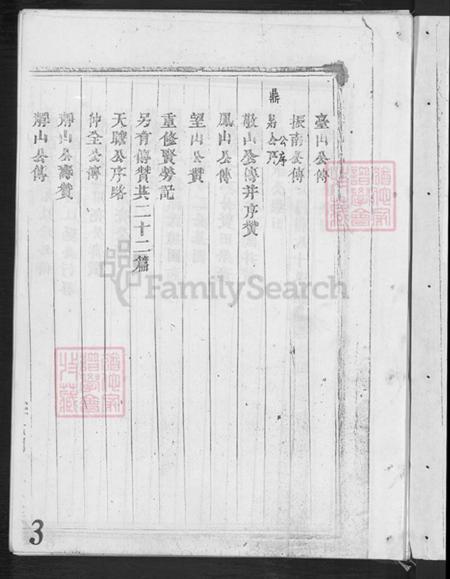 臺山公傳
振南公傳
鼎
公序
敬山公傳并序贊
鳳山公傳
望山公贊
重修賢勞記
另有傳贊共二十二篇
天驥公序略
仲全公傳
靜山公壽贊
靜山公傳
FamilySearch
3